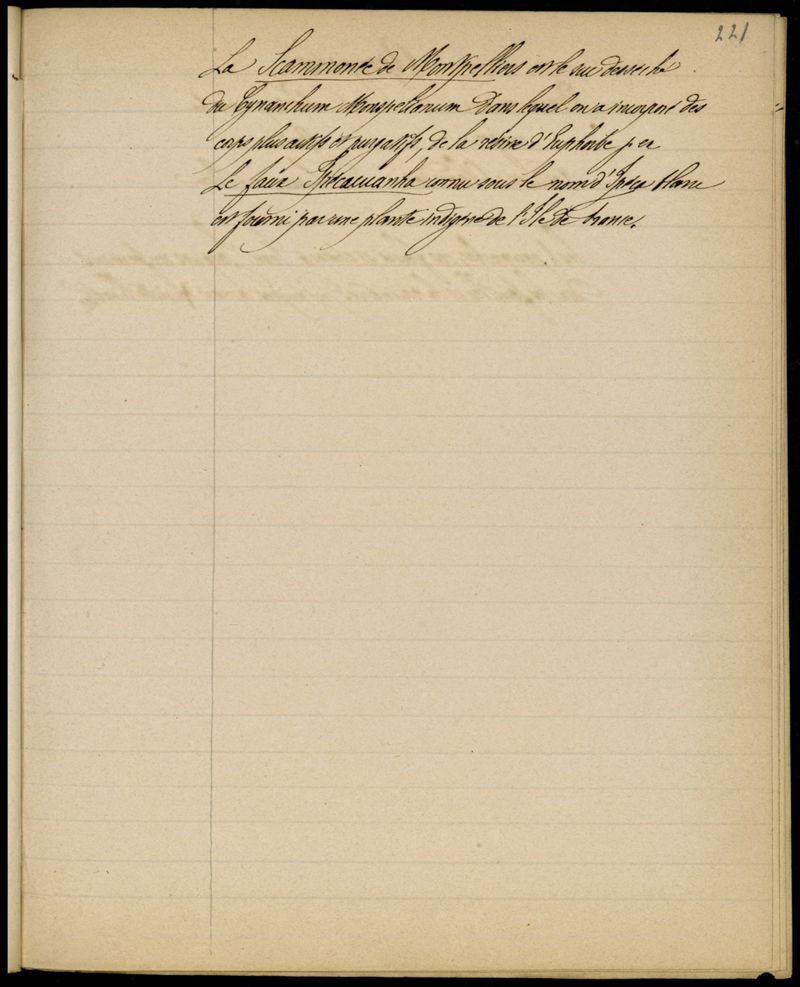 221
La Scammonée de Montpelliers est le suc desseché
du Cynanchum Monspeliacum Dans lequel on a incorporé des
corps plus actifs et purgatifs, de la résine d'Euphorbe p ex
Le faux Ipecacuanha connu sous le nom d'Ipéca blanc
est fourni par une plante indigène de l'Ile de France.